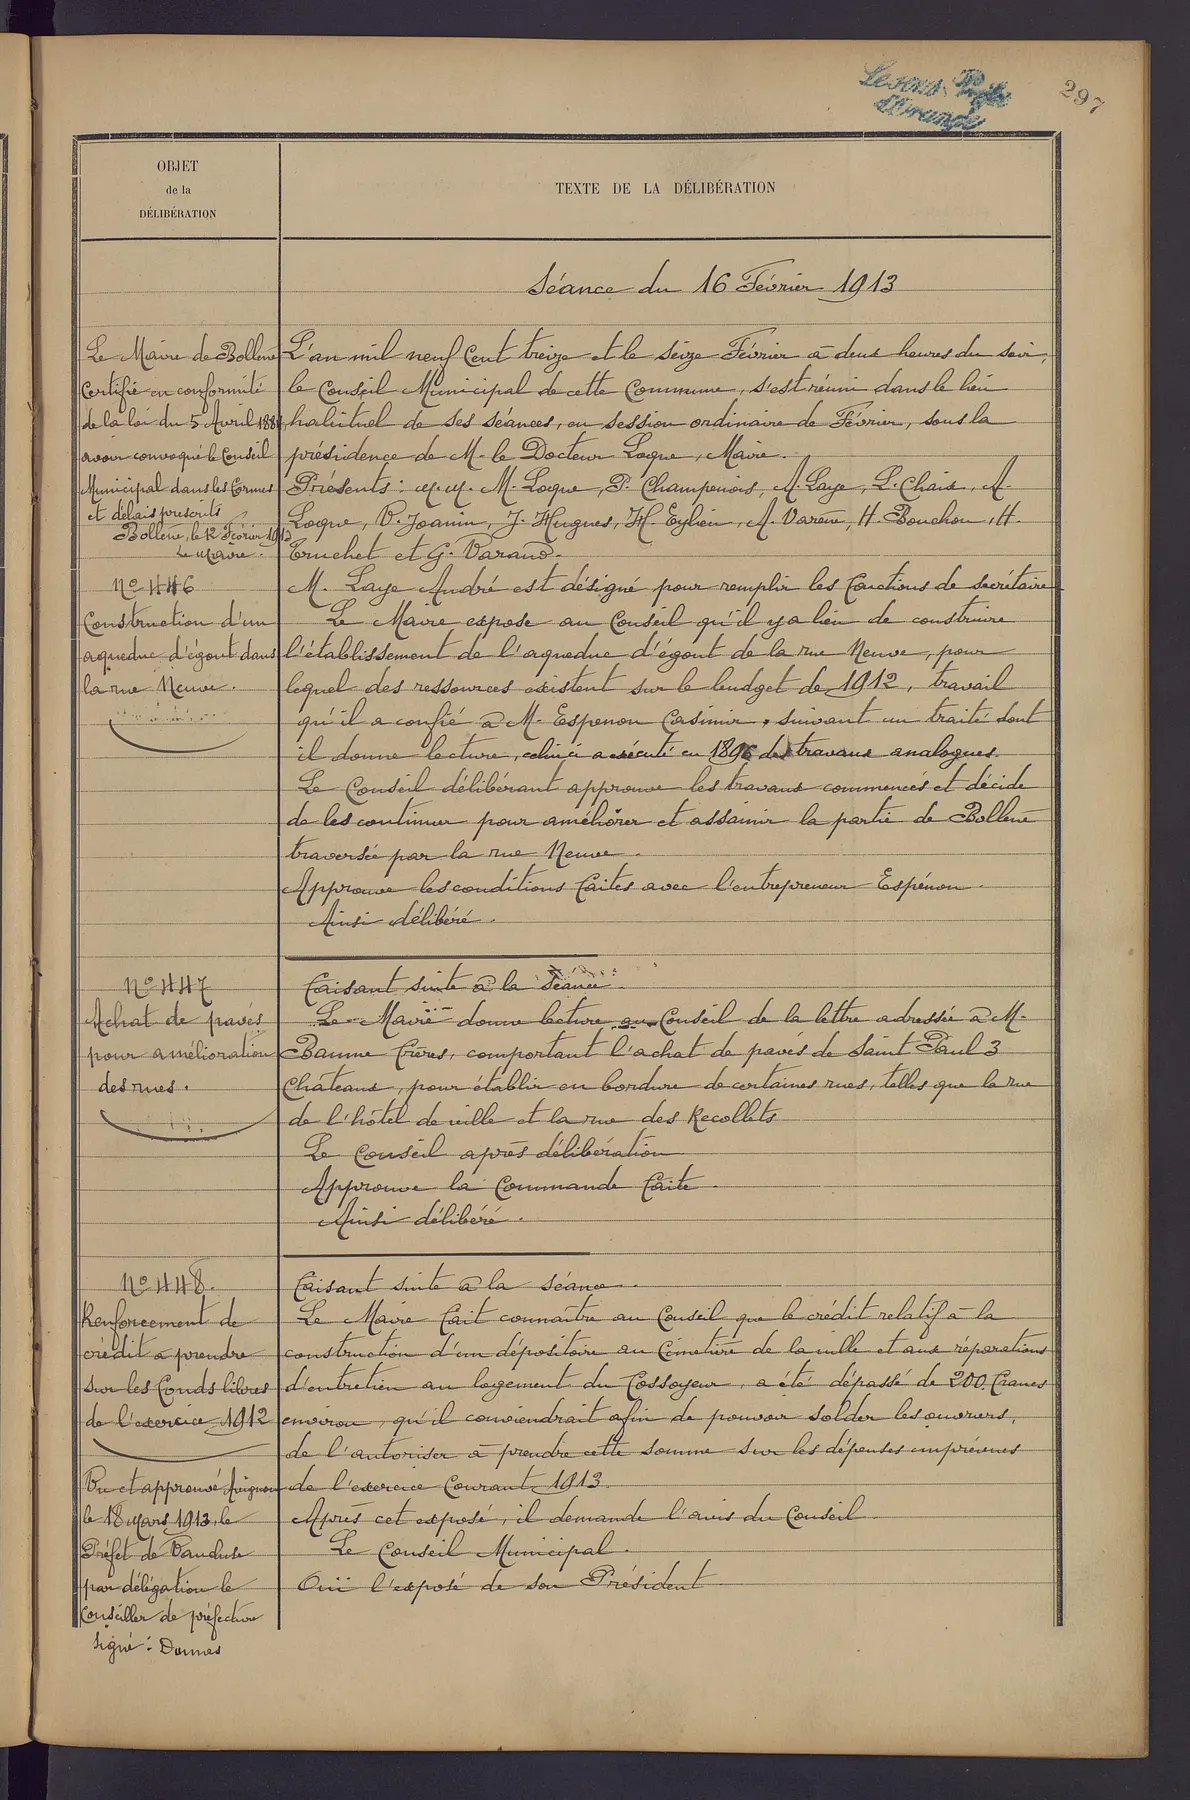 297
OBJET
de la
DÉLIBÉRATION
TEXTE DE LA DÉLIBÉRATION
Séance du 16 Février 1913
Le Maire de Bollène
Certifie en conformité
de la loi du 5 Avril 1884
avoir convoqué le Conseil
Municipal dans les formes
et délais prescrits
Bollène, le 12 Février 1913
Le Maire.
L'an mil neuf Cent treize et le seize Février à deux heures du soir,
le Conseil Municipal de cette Commune, s'est réuni dans le lieu
habituel de ses séances, en session ordinaire de Février, sous la
présidence de M. le Docteur Loque, Maire.
Présents : M.M. M. Loque, P. Champenois, A. Laye, L. Chaix, A.
Loque, V. Joanin, J. Hugues, H. Eylieu, A. Varène, H. Bouchon, H.
Truchet et G. Varand.
M. Laye André est désigné pour remplir les fonctions de secrétaire
N° 446
Construction d'un
aqueduc d'égout dans
la rue Neuve.
Le Maire expose au Conseil qu'il y a lieu de construire
l'établissement de l'aqueduc d'égout de la rue Neuve, pour
lequel des ressources existent sur le budget de 1912, travail
qu'il a confié à M. Espenon Casimir, suivant un traité dont
il donne lecture, celui-ci a exécuté en 1896 des travaux analogues.
Le Conseil délibérant approuve les travaux commencés et décide
de les continuer pour améliorer et assainir la partie de Bollène
traversée par la rue Neuve.
Approuve les conditions faites avec l'entrepreneur Espénon.
Ainsi délibéré.
N° 447
Achat de pavés
pour amélioration
des rues.
Faisant suite à la Séance.
Le Maire donne lecture au Conseil de la lettre adressée à M.
Baume frères, comportant l'achat de pavés de Saint Paul 3
Châteaux, pour établir en bordure de certaines rues, telles que la rue
de l'hôtel de ville et la rue des Recollets
Le Conseil après délibération
Approuve la Commande faite.
Ainsi délibéré.
N° 448.
Renforcement de
crédit à prendre
sur les fonds libres
de l'exercice 1912
Vu et approuvé Avignon
le 18 Mars 1913, le
Préfet de Vaucluse
par délégation le
Conseiller de préfecture
Signé :
Faisant suite à la séance.
Le Maire fait connaître au Conseil que le crédit relatif à la
construction d'un dépositoire au Cimetière de la ville et aux réparations
d'entretien au logement du fossoyeur, a été dépassé de 200 francs
environ, qu'il conviendrait afin de pouvoir solder les ouvriers,
de l'autoriser à prendre cette somme sur les dépenses imprévues
de l'exercice Courant 1913.
Après cet exposé, il demande l'avis du Conseil
Le Conseil Municipal.
Ouï l'exposé de son Président